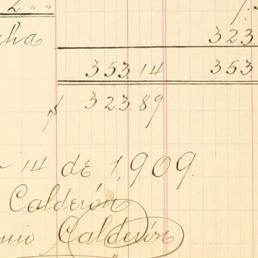 2 " "
cha 323
353 14 353
$ 323 89
14 de 1,909.
Calderón
Calderón